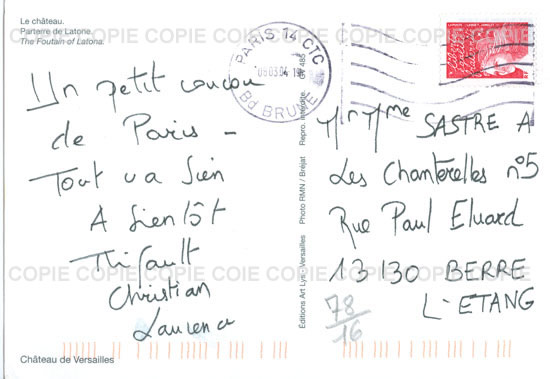 Le château.
Parterre de Latone.
The Foutain of Latona.
COPIE COPIE COPIE COPIE COPIE COPIE
PARIS 14 CTC
Bd BRUNE
Un petit coucou
de Paris -
Tout va bien
A bientôt
Thibault
Christian
Laurence
Mr Mme SASTRE A
Les Chanterelles n°5
Rue Paul Eluard
13130 BERRE
L-ETANG
78
16
COPIE COPIE COPIE COIE COPIE COPIE COPIE
Editions Art Lys - Versailles Photo RMN / Bréjat Repro. interdite
Château de Versailles